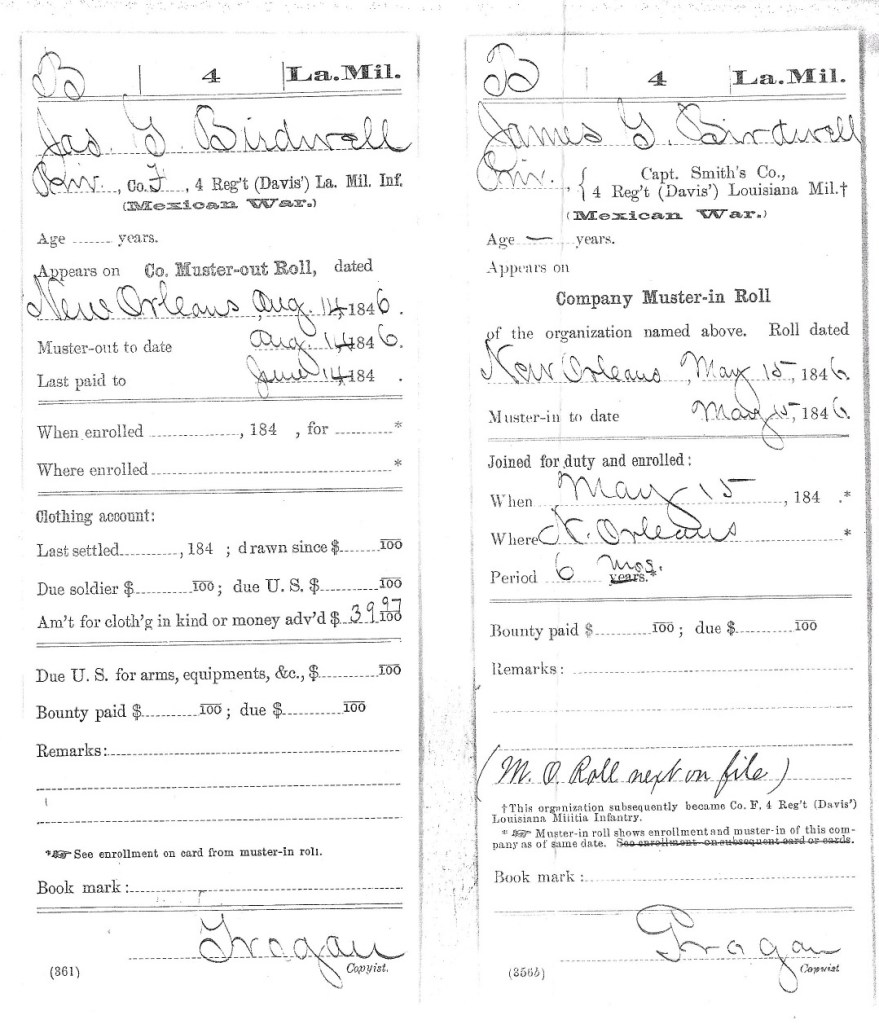 B | 4 | La. Mil.
Jas. G. Birdwell
Priv., Co. F, 4 Reg't (Davis') La. Mil. Inf.
(Mexican War.)
Age ........ years.
Appears on Co. Muster-out Roll, dated
New Orleans Aug. 14, 1846.
Muster-out to date Aug. 14, 1846.
Last paid to June 14, 184 .
When enrolled ........, 184 , for ........*
Where enrolled ........*
Clothing account:
Last settled ........, 184 ; drawn since $........100
Due soldier $........100; due U. S. $........100
Am't for cloth'g in kind or money adv'd $ 39 97/100
Due U. S. for arms, equipments, &c., $........100
Bounty paid $........100; due $........100
Remarks:
*☞ See enrollment on card from muster-in roll.
Book mark:
(361) Copyist.
B | 4 | La. Mil.
James G. Birdwell
Priv., { Capt. Smith's Co.,
4 Reg't (Davis') Louisiana Mil.†
(Mexican War.)
Age — years.
Appears on
Company Muster-in Roll
of the organization named above. Roll dated
New Orleans, May 15, 1846.
Muster-in to date May 15, 1846.
Joined for duty and enrolled:
When May 15, 184 .*
Where N. Orleans *
Period 6 mos. years.*
Bounty paid $........100; due $........100
Remarks:
(M. O. Roll next on file)
†This organization subsequently became Co. F, 4 Reg't (Davis')
Louisiana Militia Infantry.
* ☞ Muster-in roll shows enrollment and muster-in of this com-
pany as of same date. See enrollment on subsequent card or cards.
Book mark:
(356b) Copyist